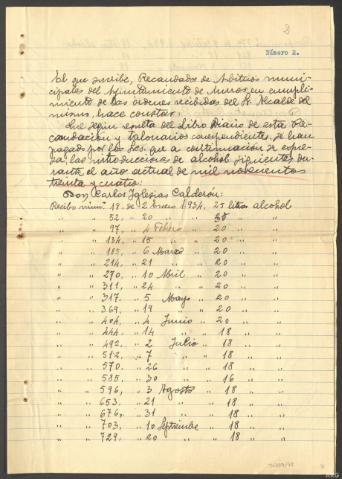 2
Número 2.
El que suscribe, Recaudador de Arbitrios muni-
cipales del Ayuntamiento de Muros, en cumpli-
miento de las órdenes recibidas del Sr. Alcalde del
mismo, hace constar:
Que según resulta del Libro Diario de esta Re-
caudación y talonarios correspondientes, se han
pagado por los Sres. que a continuación se expre-
sa, las introducciones de alcohol siguientes du-
rante el año actual de mil novecientos
treinta y cuatro.
Don Carlos Iglesias Calderón:
Recibo núm. 18, de 2 Enero 1934, 25 litros alcohol
" " 52, " 20 " " 30 "
" " 97, " 4 Febro " 20 "
" " 134, " 15 " " 20 "
" " 185, " 6 Marzo " 20 "
" " 214, " 21 " " 20 "
" " 270, " 10 Abril " 20 "
" " 311, " 24 " " 20 "
" " 317, " 5 Mayo " 20 "
" " 369, " 19 " " 20 "
" " 404, " 4 Junio " 20 "
" " 444, " 14 " " 18 "
" " 492, " 2 Julio " 18 "
" " 512, " 7 " " 18 "
" " 570, " 26 " " 18 "
" " 585, " 30 " " 16 "
" " 596, " 3 Agosto " 18 "
" " 653, " 21 " " 18 "
" " 676, " 31 " " 18 "
" " 703, " 10 Septiembre " 18 "
" " 729, " 20 " " 18 "